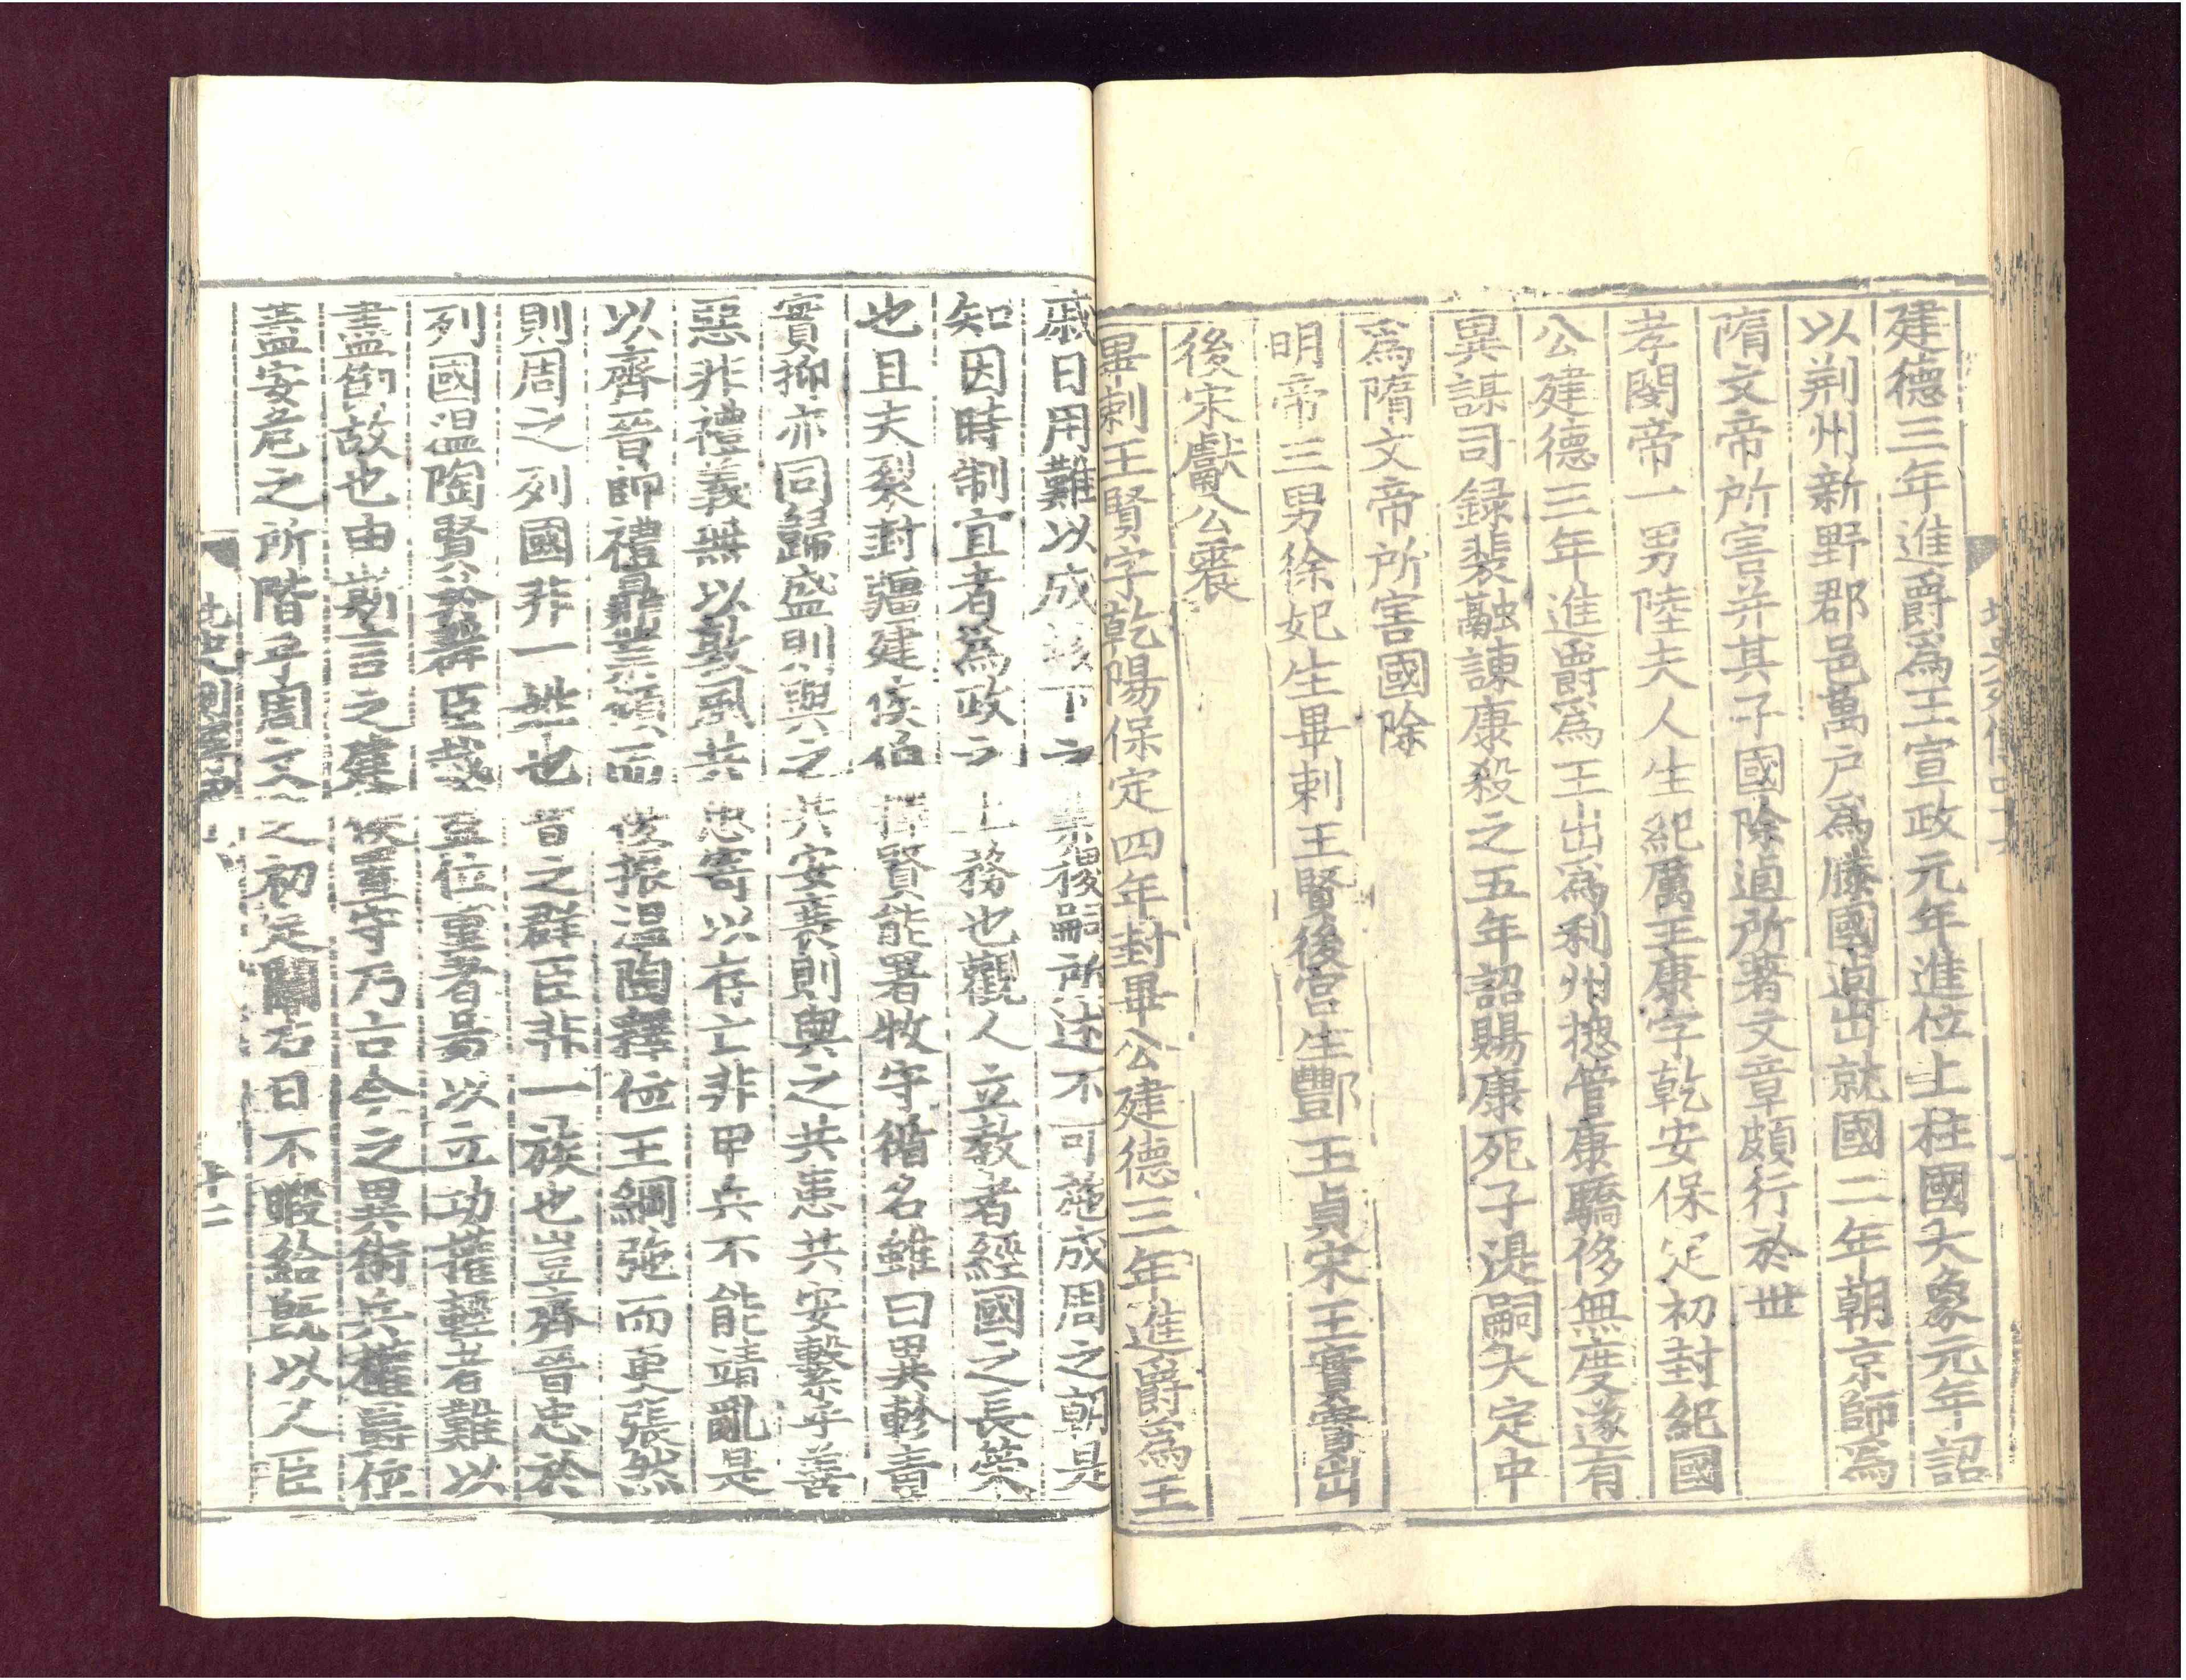 建德三年進爵爲王宣政元年進位上柱國大象元年詔
以荆州新野郡邑萬户爲滕國逌出就國二年朝京師爲
隋文帝所害并其子國除逌所著文章頗行於世
孝閔帝一男陸夫人生紀厲王康字乾安保定初封紀國
公建德三年進爵爲王出爲利州揔管康驕侈無度遂有
異謀司録裴融諌康殺之五年詔賜康死子湜嗣大定中
爲隋文帝所害國除
明帝三男徐妃生畢剌王賢後宮生酆王貞宋王實實出
後宋獻公震
畢剌王賢字乾陽保定四年封畢公建德三年進爵爲王
戚日用難以成 下之 業稷嗣所述不可 成周之朝是
知因時制宜者爲政之上務也觀人立教者經國之長榮
也且夫裂封疆建侯伯擇賢能署牧守循名雖曰異軫責
實抑亦同歸盛則與之共安衰則與之共患共安繫乎善
惡非禮義無以敦風共患寄以存亡非甲兵不能靖亂是
以齊晉帥禮鼎業傾而復振温陶釋位王綱弛而更張然
則周之列國非一姓也晉之群臣非一族也豈齊晉忠於
列國温陶賢於群臣哉 位重者易以立功權輕者難以
盡節故也由斯言之建侯置守乃古今之異術兵權爵位
蓋安危之所階乎周文 之初定關右日不暇給旣以人臣
北史列傳四十六
十二